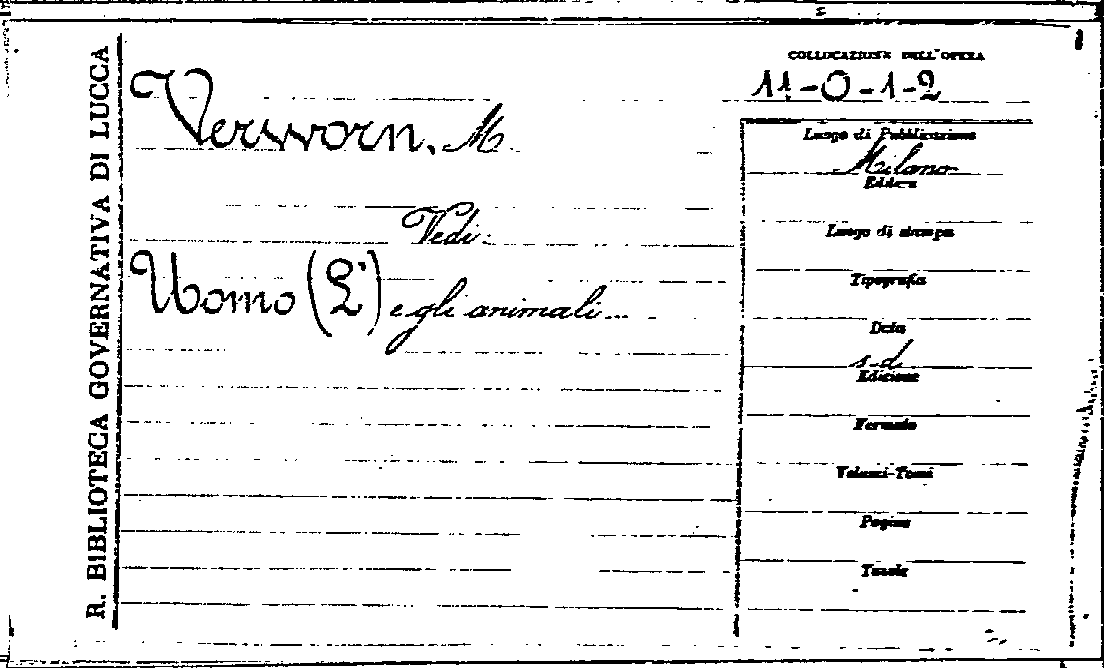 R. BIBLIOTECA GOVERNATIVA DI LUCCA
COLLOCAZIONE DELL'OPERA
11-0-1-2
Verworn, M.
Vedi:
Uomo (L') e gli animali...
Luogo di Pubblicazione
Milano
Editore
Luogo di stampa
Tipografia
Data
s.d.
Edizione
Formato
Volumi-Tomi
Pagine
Tavole